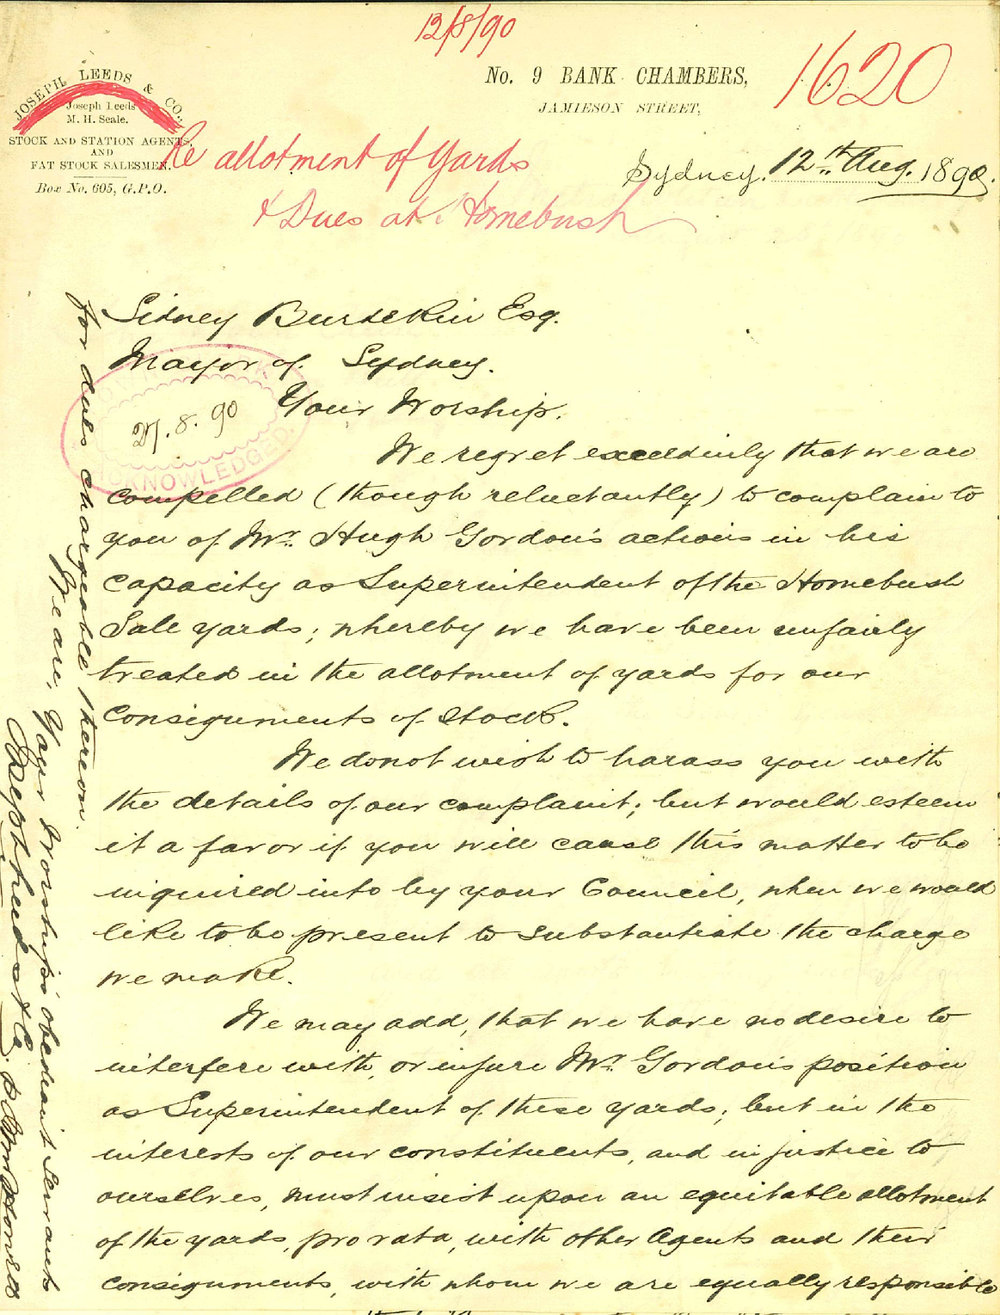 12/8/90
1620
JOSEPH LEEDS & CO.,
Joseph Leeds
M. H. Seale.
STOCK AND STATION AGENTS,
AND
FAT STOCK SALESMEN.
Box No. 605, G.P.O.
No. 9 BANK CHAMBERS,
JAMIESON STREET,
Re allotment of Yards
& Dues at Homebush
Sydney. 12th Aug. 1890.
Sidney Burdekin Esq.
Mayor of Sydney.
27.8.90
ACKNOWLEDGED.
Your Worship.
We regret exceedinly that we are
compelled (though reluctantly) to complain to
you of Mr. Hugh Gordon's actions in his
capacity as Superintendent of the Homebush
Sale yards; whereby we have been unfairly
treated in the allotment of yards for our
Consignments of Stock.
We do not wish to harass you with
the details of our complaint; but would esteem
it a favor if you will cause this matter to be
inquired into by your Council, when we would
like to be present to substantiate the charge
we make.
We may add, that we have no desire to
interfere with, or injure Mr. Gordon's position
as Superintendent of these yards; but in the
interests of our constituents, and in justice to
ourselves, must insist upon an equitable allotment
of the yards, pro rata, with other Agents and their
consignments, with whom we are equally responsible
for dues chargeable thereon.
We are, Your Worship's obedient Servants